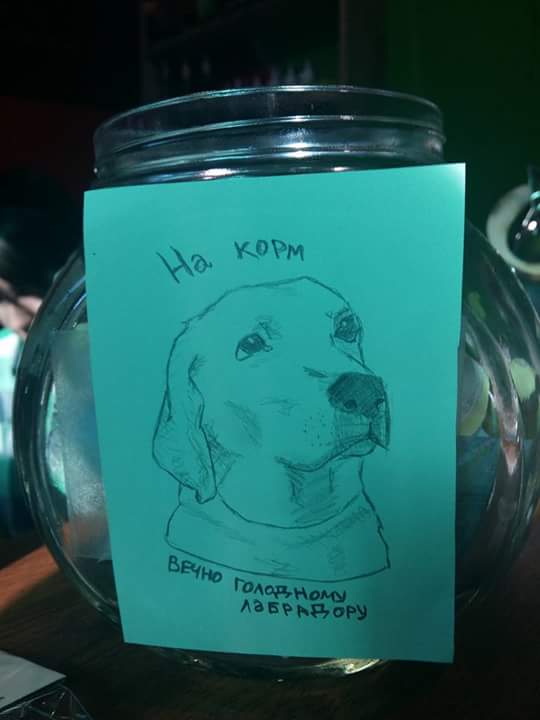 На корм
вечно голодному
лабрадору